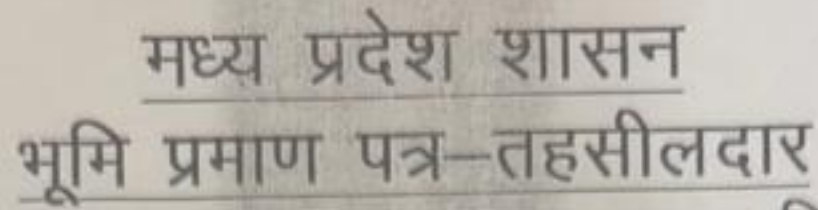 मध्य प्रदेश शासन
भूमि प्रमाण पत्र–तहसीलदार